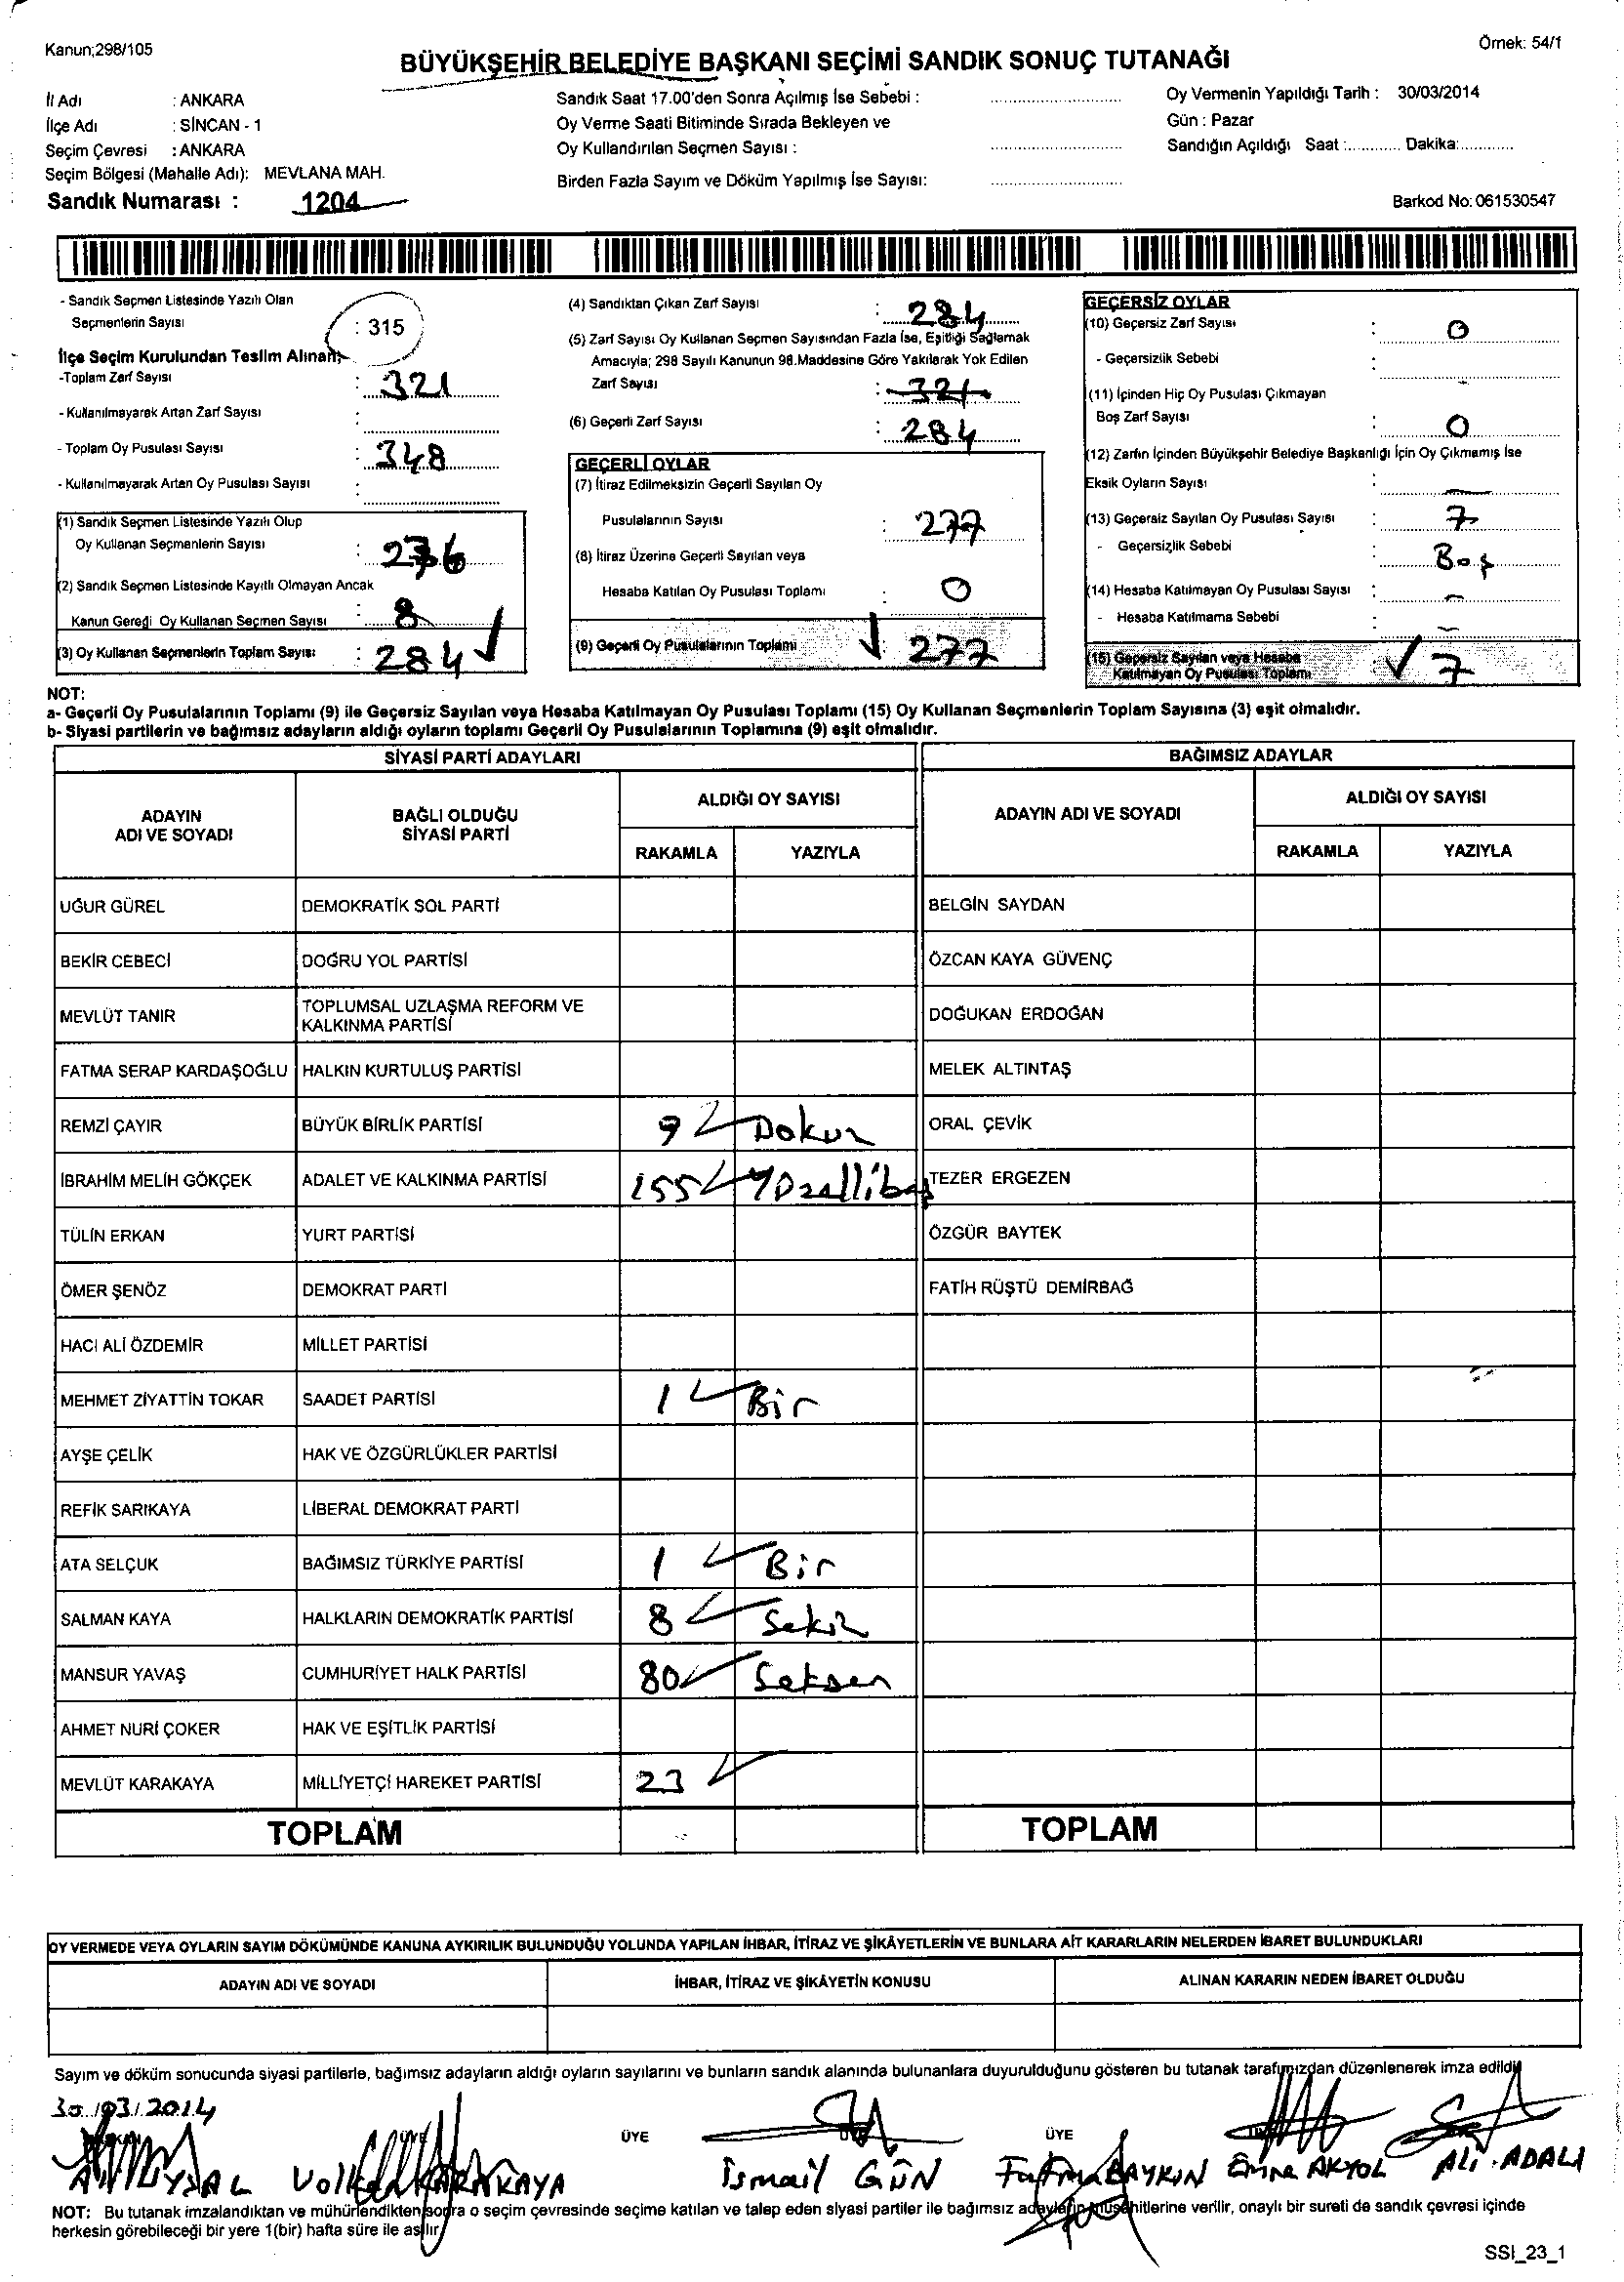 Kanun;298/105
Örnek: 54/1
BÜYÜKŞEHİR BELEDİYE BAŞKANI SEÇİMİ SANDIK SONUÇ TUTANAĞI
İl Adı : ANKARA
İlçe Adı : SİNCAN - 1
Seçim Çevresi : ANKARA
Seçim Bölgesi (Mahalle Adı): MEVLANA MAH.
Sandık Numarası : 1204
Sandık Saat 17.00'den Sonra Açılmış İse Sebebi :
Oy Verme Saati Bitiminde Sırada Bekleyen ve
Oy Kullandırılan Seçmen Sayısı :
Birden Fazla Sayım ve Döküm Yapılmış İse Sayısı:
Oy Vermenin Yapıldığı Tarih : 30/03/2014
Gün : Pazar
Sandığın Açıldığı Saat :............ Dakika:............
Barkod No: 061530547
- Sandık Seçmen Listesinde Yazılı Olan
Seçmenlerin Sayısı : 315
İlçe Seçim Kurulundan Teslim Alınan;
-Toplam Zarf Sayısı : 321
- Kullanılmayarak Artan Zarf Sayısı :
- Toplam Oy Pusulası Sayısı : 348
- Kullanılmayarak Artan Oy Pusulası Sayısı :
(1) Sandık Seçmen Listesinde Yazılı Olup
Oy Kullanan Seçmenlerin Sayısı : 276
(2) Sandık Seçmen Listesinde Kayıtlı Olmayan Ancak
Kanun Gereği Oy Kullanan Seçmen Sayısı : 8
(3) Oy Kullanan Seçmenlerin Toplam Sayısı : 284
(4) Sandıktan Çıkan Zarf Sayısı : 284
(5) Zarf Sayısı Oy Kullanan Seçmen Sayısından Fazla İse, Eşitliği Sağlamak
Amacıyla; 298 Sayılı Kanunun 98.Maddesine Göre Yakılarak Yok Edilen
Zarf Sayısı : 321
(6) Geçerli Zarf Sayısı : 284
GEÇERLİ OYLAR
(7) İtiraz Edilmeksizin Geçerli Sayılan Oy
Pusulalarının Sayısı : 277
(8) İtiraz Üzerine Geçerli Sayılan veya
Hesaba Katılan Oy Pusulası Toplamı : 0
(9) Geçerli Oy Pusulalarının Toplamı : 277
GEÇERSİZ OYLAR
(10) Geçersiz Zarf Sayısı : 0
- Geçersizlik Sebebi :
(11) İçinden Hiç Oy Pusulası Çıkmayan
Boş Zarf Sayısı : 0
(12) Zarfın İçinden Büyükşehir Belediye Başkanlığı İçin Oy Çıkmamış İse
Eksik Oyların Sayısı : —
(13) Geçersiz Sayılan Oy Pusulası Sayısı : 7
- Geçersizlik Sebebi : Boş
(14) Hesaba Katılmayan Oy Pusulası Sayısı : —
- Hesaba Katılmama Sebebi : —
(15) Geçersiz Sayılan veya Hesaba
Katılmayan Oy Pusulası Toplamı : 7
NOT:
a- Geçerli Oy Pusulalarının Toplamı (9) ile Geçersiz Sayılan veya Hesaba Katılmayan Oy Pusulası Toplamı (15) Oy Kullanan Seçmenlerin Toplam Sayısına (3) eşit olmalıdır.
b- Siyasi partilerin ve bağımsız adayların aldığı oyların toplamı Geçerli Oy Pusulalarının Toplamına (9) eşit olmalıdır.
SİYASİ PARTİ ADAYLARI
BAĞIMSIZ ADAYLAR
ADAYIN ADI VE SOYADI
BAĞLI OLDUĞU SİYASİ PARTİ
ALDIĞI OY SAYISI
RAKAMLA YAZIYLA
ADAYIN ADI VE SOYADI
ALDIĞI OY SAYISI
RAKAMLA YAZIYLA
UĞUR GÜREL DEMOKRATİK SOL PARTİ BELGİN SAYDAN
BEKİR CEBECİ DOĞRU YOL PARTİSİ ÖZCAN KAYA GÜVENÇ
MEVLÜT TANIR TOPLUMSAL UZLAŞMA REFORM VE KALKINMA PARTİSİ DOĞUKAN ERDOĞAN
FATMA SERAP KARDAŞOĞLU HALKIN KURTULUŞ PARTİSİ MELEK ALTINTAŞ
REMZİ ÇAYIR BÜYÜK BİRLİK PARTİSİ 9 Dokuz ORAL ÇEVİK
İBRAHİM MELİH GÖKÇEK ADALET VE KALKINMA PARTİSİ 155 Yüzellibeş TEZER ERGEZEN
TÜLİN ERKAN YURT PARTİSİ ÖZGÜR BAYTEK
ÖMER ŞENÖZ DEMOKRAT PARTİ FATİH RÜŞTÜ DEMİRBAĞ
HACI ALİ ÖZDEMİR MİLLET PARTİSİ
MEHMET ZİYATTİN TOKAR SAADET PARTİSİ 1 Bir
AYŞE ÇELİK HAK VE ÖZGÜRLÜKLER PARTİSİ
REFİK SARIKAYA LİBERAL DEMOKRAT PARTİ
ATA SELÇUK BAĞIMSIZ TÜRKİYE PARTİSİ 1 Bir
SALMAN KAYA HALKLARIN DEMOKRATİK PARTİSİ 8 Sekiz
MANSUR YAVAŞ CUMHURİYET HALK PARTİSİ 80 Seksen
AHMET NURİ ÇOKER HAK VE EŞİTLİK PARTİSİ
MEVLÜT KARAKAYA MİLLİYETÇİ HAREKET PARTİSİ 23
TOPLAM TOPLAM
OY VERMEDE VEYA OYLARIN SAYIM DÖKÜMÜNDE KANUNA AYKIRILIK BULUNDUĞU YOLUNDA YAPILAN İHBAR, İTİRAZ VE ŞİKÂYETLERİN VE BUNLARA AİT KARARLARIN NELERDEN İBARET BULUNDUKLARI
ADAYIN ADI VE SOYADI İHBAR, İTİRAZ VE ŞİKÂYETİN KONUSU ALINAN KARARIN NEDEN İBARET OLDUĞU
Sayım ve döküm sonucunda siyasi partilerle, bağımsız adayların aldığı oyların sayılarını ve bunların sandık alanında bulunanlara duyurulduğunu gösteren bu tutanak tarafımızdan düzenlenerek imza edildi
30/03/2014
ÜYE ÜYE
UYSAL Volkan KARAKAYA İsmail GÜN Fatma BAYKIN Emine AKYOL ALİ ADALI
NOT: Bu tutanak imzalandıktan ve mühürlendikten sonra o seçim çevresinde seçime katılan ve talep eden siyasi partiler ile bağımsız adayların müşahitlerine verilir, onaylı bir sureti de sandık çevresi içinde
herkesin görebileceği bir yere 1(bir) hafta süre ile asılır
SSI_23_1